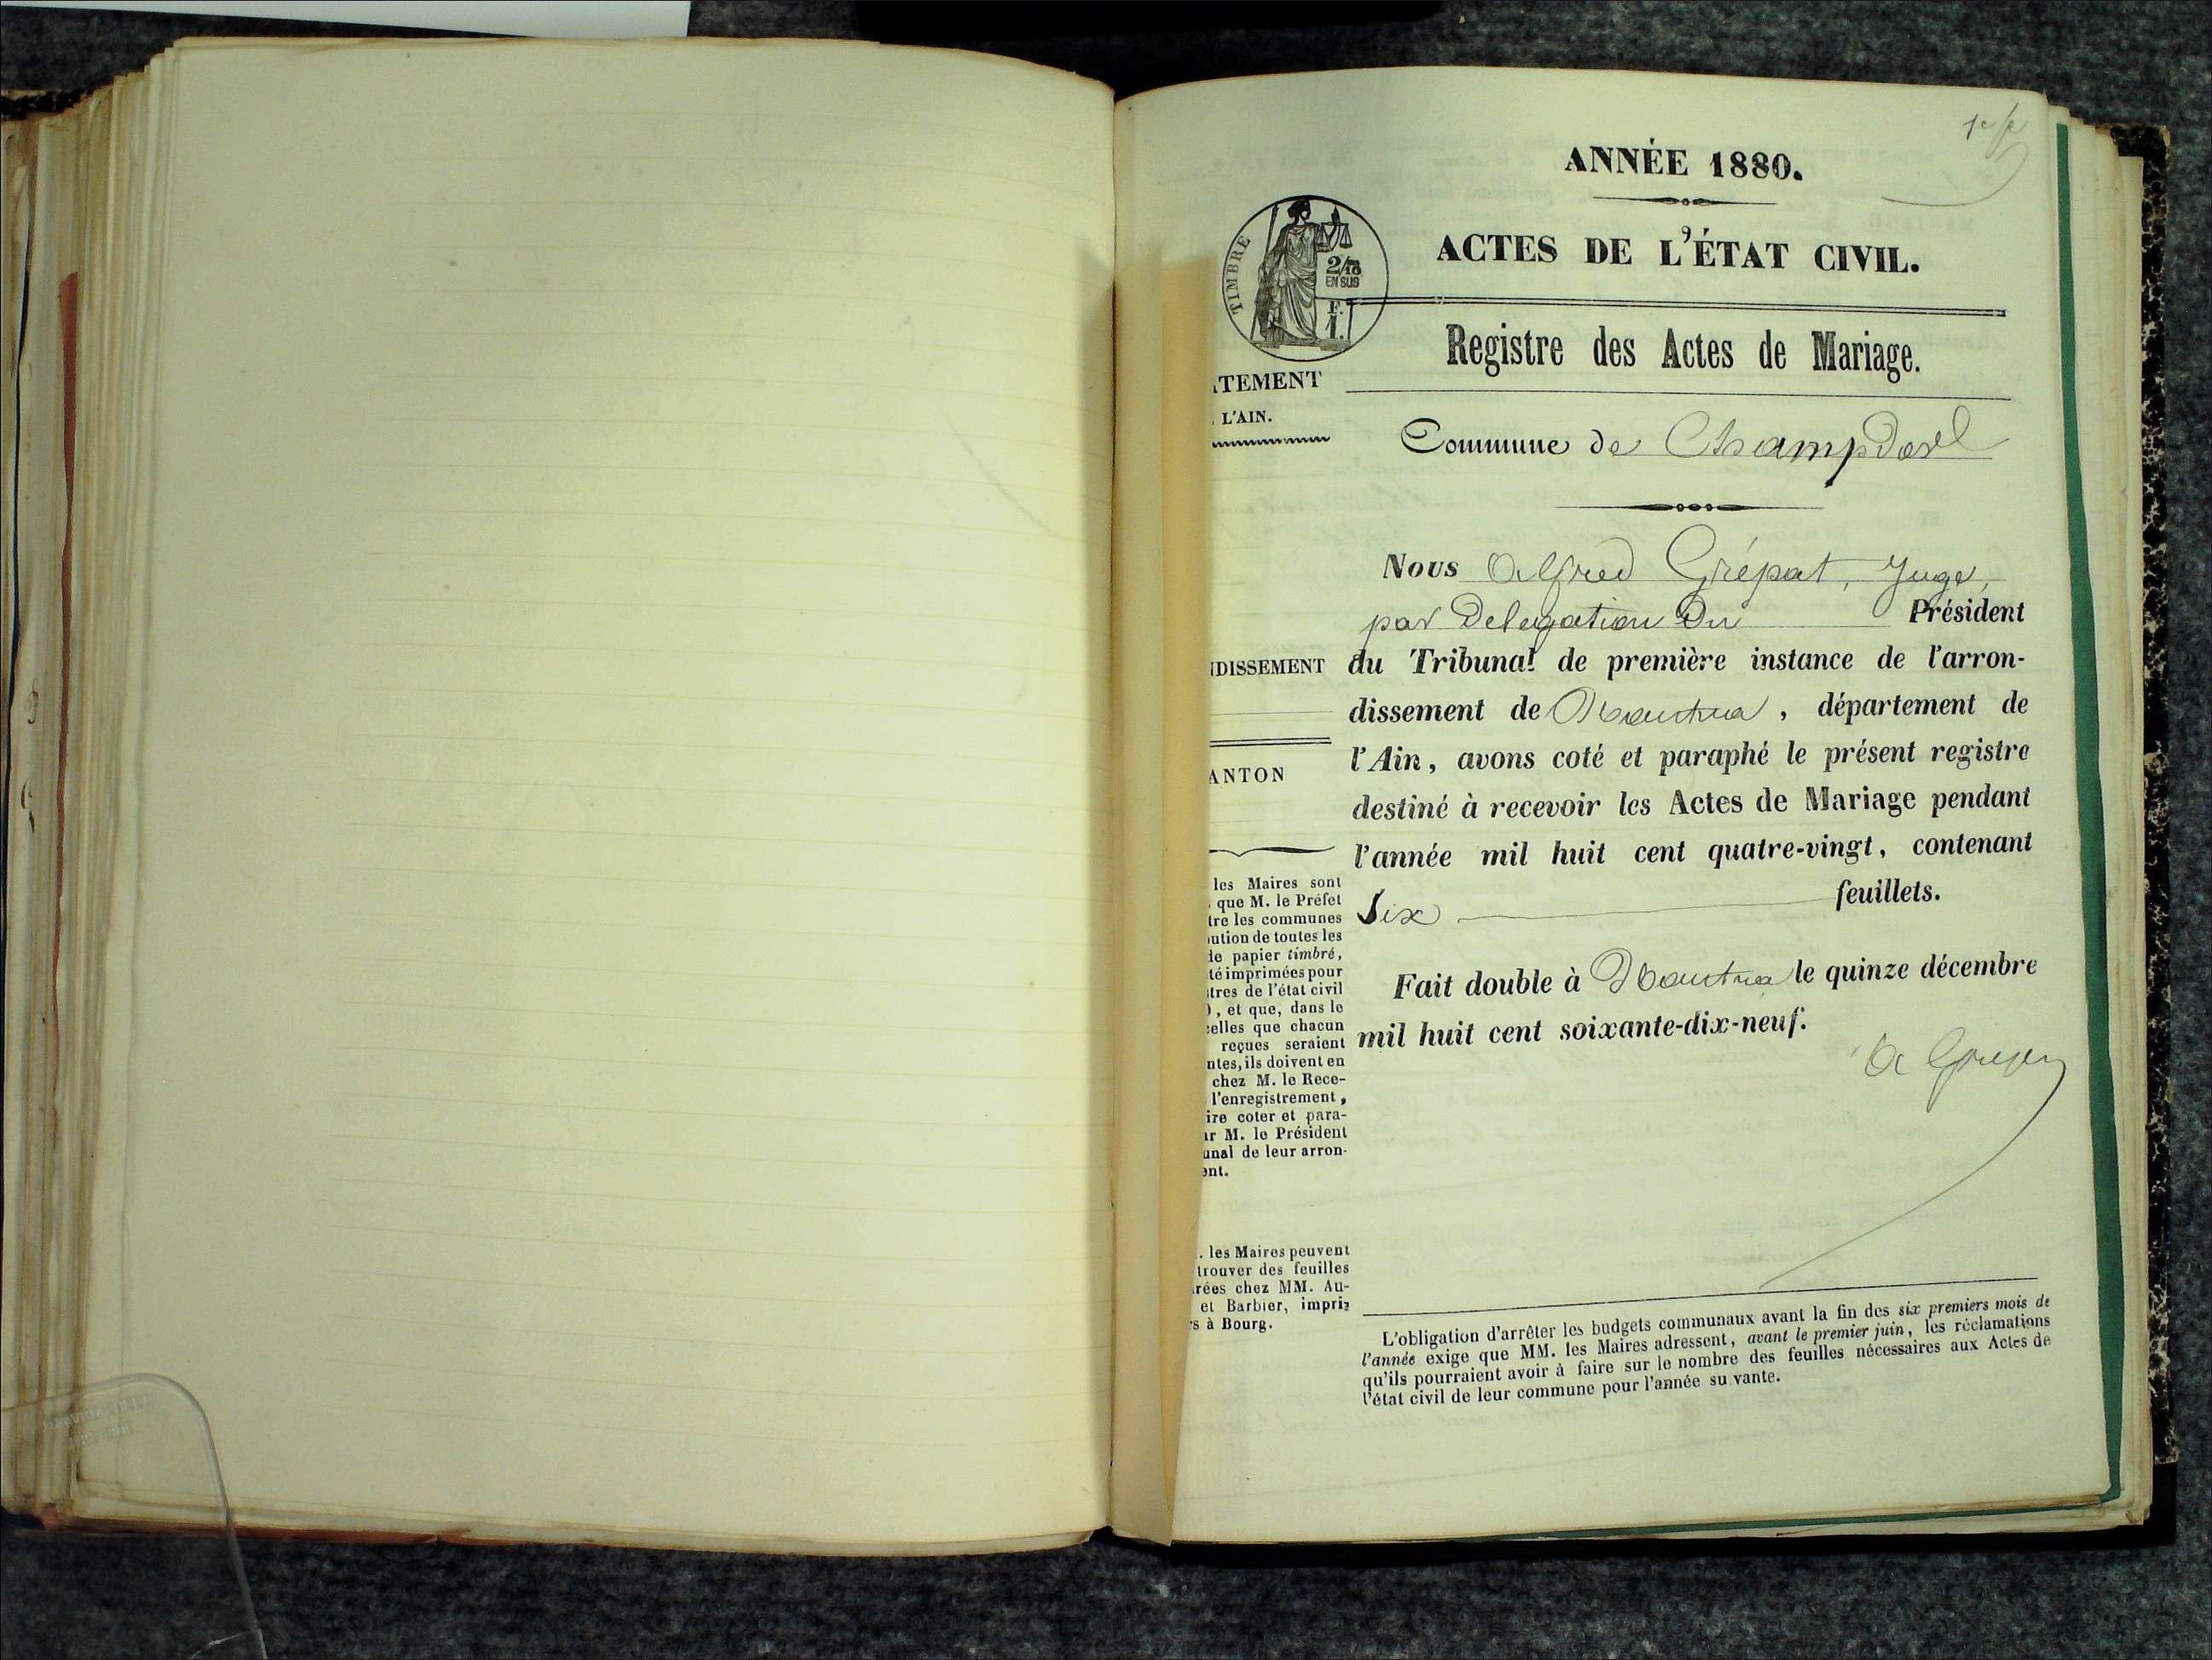 1er f
ANNÉE 1880.
ACTES DE L'ÉTAT CIVIL.
TIMBRE
2/10
EN SUS
F.
1.
Registre des Actes de Mariage.
TEMENT
L'AIN.
Commune de Champdor
Nous Alfred Grépat, Juge,
par Delegation Du Président
NDISSEMENT
du Tribunal de première instance de l'arron-
dissement de Nantua, département de
l'Ain, avons coté et paraphé le présent registre
ANTON
destiné à recevoir les Actes de Mariage pendant
l'année mil huit cent quatre-vingt, contenant
Six feuillets.
Fait double à Nantua le quinze décembre
mil huit cent soixante-dix-neuf.
les Maires sont
que M. le Préfet
tre les communes
ution de toutes les
de papier timbré,
té imprimées pour
tres de l'état civil
), et que, dans le
celles que chacun
reçues seraient
ntes, ils doivent en
chez M. le Rece-
l'enregistrement,
ire coter et para-
ar M. le Président
unal de leur arron-
ent.
. les Maires peuvent
trouver des feuilles
rées chez MM. Au-
et Barbier, impri-
s à Bourg.
L'obligation d'arrêter les budgets communaux avant la fin des six premiers mois de
l'année exige que MM. les Maires adressent, avant le premier juin, les réclamations
qu'ils pourraient avoir à faire sur le nombre des feuilles nécessaires aux Actes de
l'état civil de leur commune pour l'année su vante.